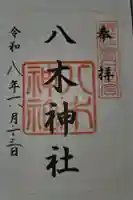 奉拝
八木神社
八木神社
令和八年一月二十三日